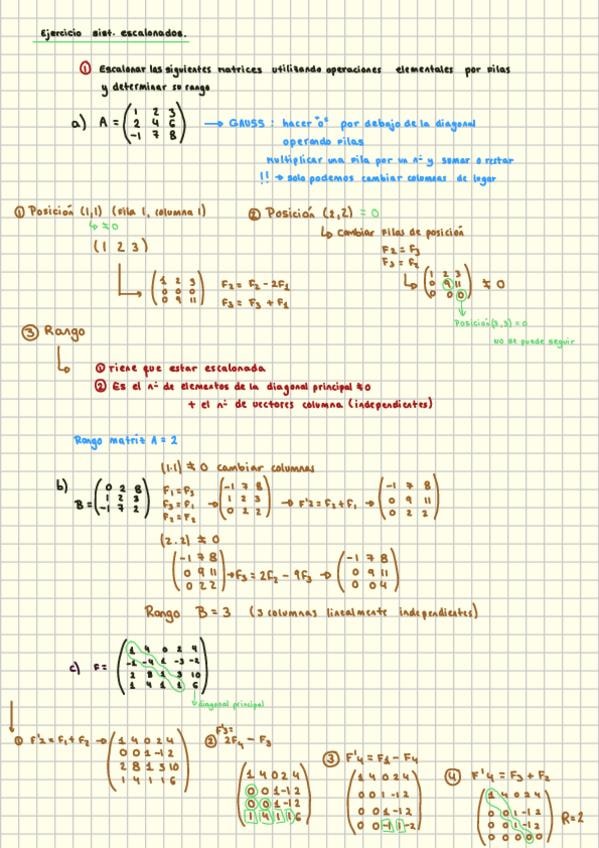 Ejercicio sist. escalonados.
① Escalonar las siguientes matrices utilizando operaciones elementales por filas
y determinar su rango
a) A = (1 2 3
2 4 6
-1 7 8)
→ GAUSS : hacer "0" por debajo de la diagonal
operando filas
Multiplicar una fila por un nº y sumar o restar
!! → solo podemos cambiar columnas de lugar
① Posición (1,1) (fila 1, columna 1)
↳ ≠0
(1 2 3)
(1 2 3
0 0 0
0 9 11)
F2 = F2 - 2F1
F3 = F3 + F1
② Posición (2,2) = 0
↳ cambiar filas de posición
F2 = F3
F3 = F2
↳ (1 2 3
0 9 11
0 0 0) ≠ 0
Posición(3,3) = 0
no se puede seguir
③ Rango
① Tiene que estar escalonada
② Es el nº de elementos de la diagonal principal ≠0
+ el nº de vectores columna (independientes)
Rango matriz A = 2
(1.1) ≠ 0 cambiar columnas
b) B = (0 2 8
1 2 3
-1 7 2)
F1 = F3
F3 = F1
F2 = F2
→ (-1 7 8
1 2 3
0 2 2) → F'2 = F2 + F1 → (-1 7 8
0 9 11
0 2 2)
(2.2) ≠ 0
(-1 7 8
0 9 11
0 2 2) → F3 = 2F2 - 9F3 → (-1 7 8
0 9 11
0 0 4)
Rango B = 3 (3 columnas linealmente independientes)
c) F = (1 4 0 2 4
-1 -4 1 -3 -2
2 8 1 3 10
1 4 1 1 6)
diagonal principal
① F'2 = F1 + F2 → (1 4 0 2 4
0 0 1 -1 2
2 8 1 3 10
1 4 1 1 6)
② F'3 =
2F4 - F3
(1 4 0 2 4
0 0 1 -1 2
0 0 1 -1 2
1 4 1 1 6)
③ F'4 = F1 - F4
(1 4 0 2 4
0 0 1 -1 2
0 0 1 -1 2
0 0 -1 1 -2)
④ F'4 = F3 + F2
(1 4 0 2 4
0 0 1 -1 2
0 0 1 -1 2
0 0 0 0 0)
R = 2